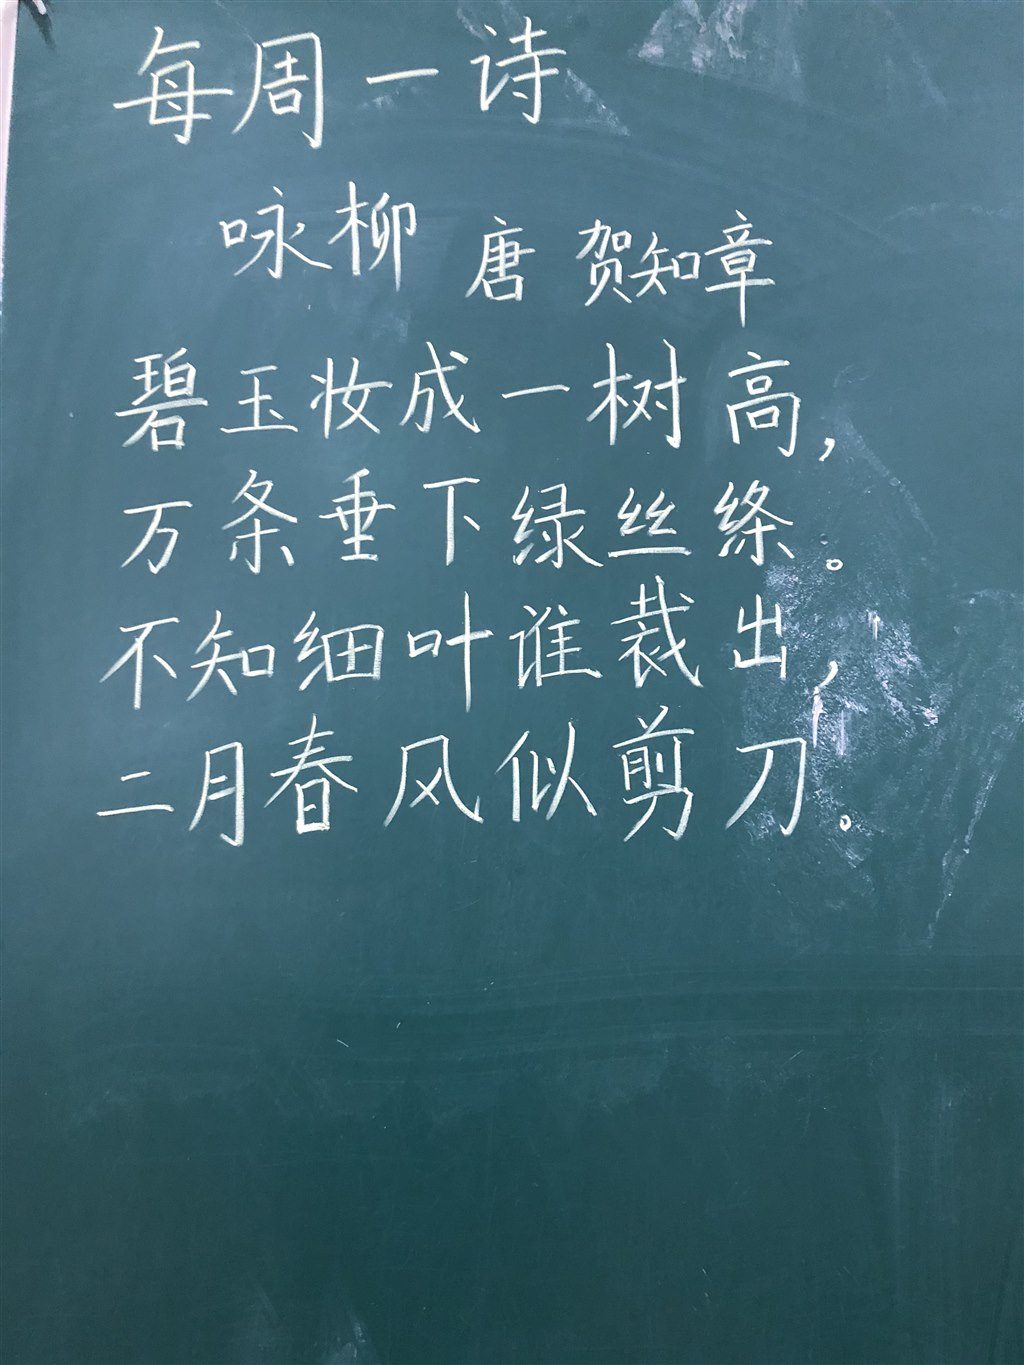 每周一诗
咏柳 唐 贺知章
碧玉妆成一树高,
万条垂下绿丝绦。
不知细叶谁裁出,
二月春风似剪刀。